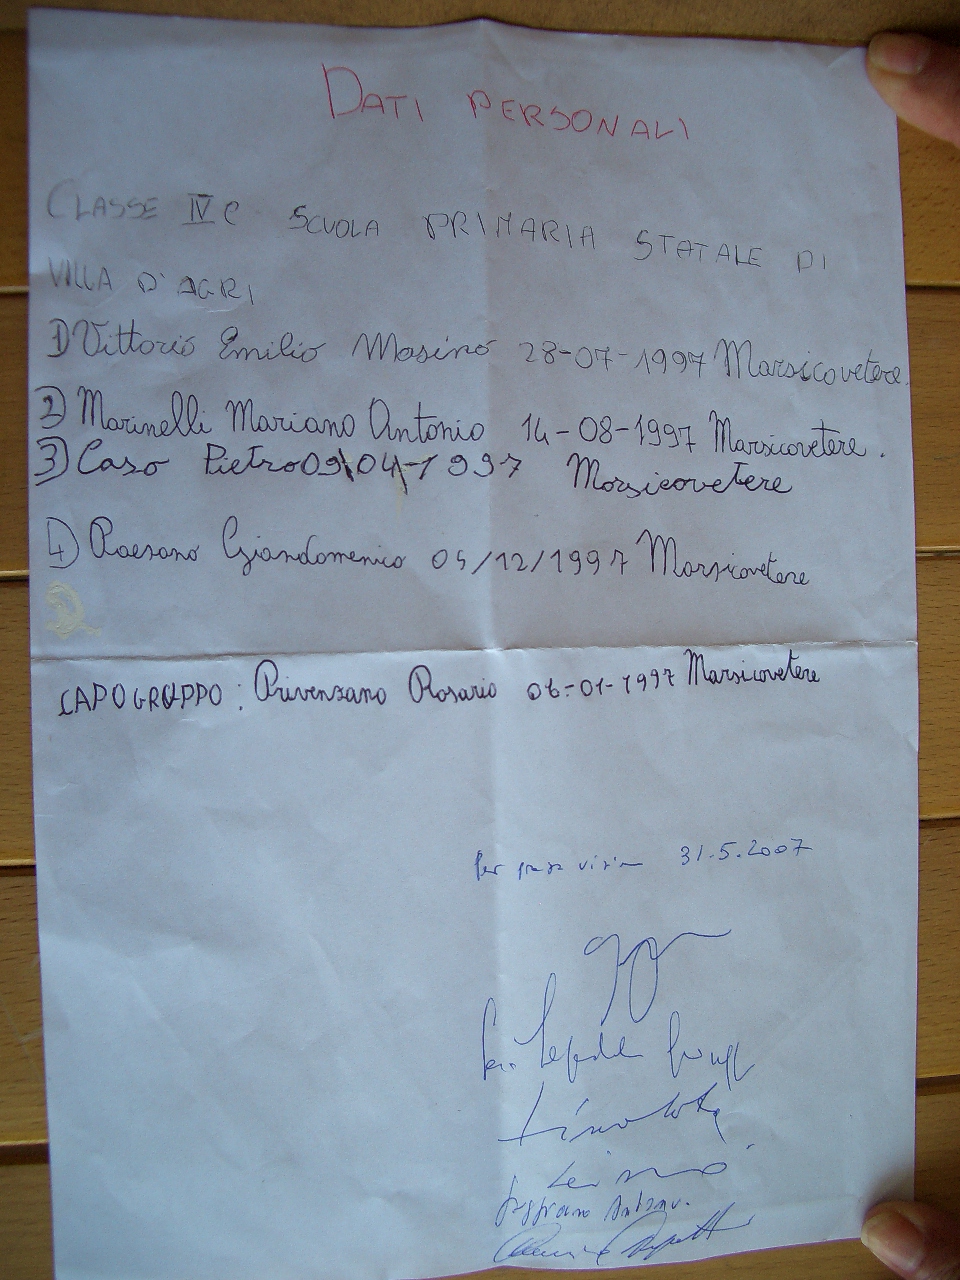 DATI PERSONALI
CLASSE IV C SCUOLA PRIMARIA STATALE DI
VILLA D'AGRI
1) Vittorio Emilio Masino 28-07-1997 Marsicovetere.
2) Marinelli Mariano Antonio 14-08-1997 Marsicovetere.
3) Caso Pietro 09\04-1997 Marsicovetere
4) Giandomenico 05/12/1997 Marsicovetere
CAPOGRUPPO: Rosario 06-01-1997 Marsicovetere
Per presa visione 31.5.2007